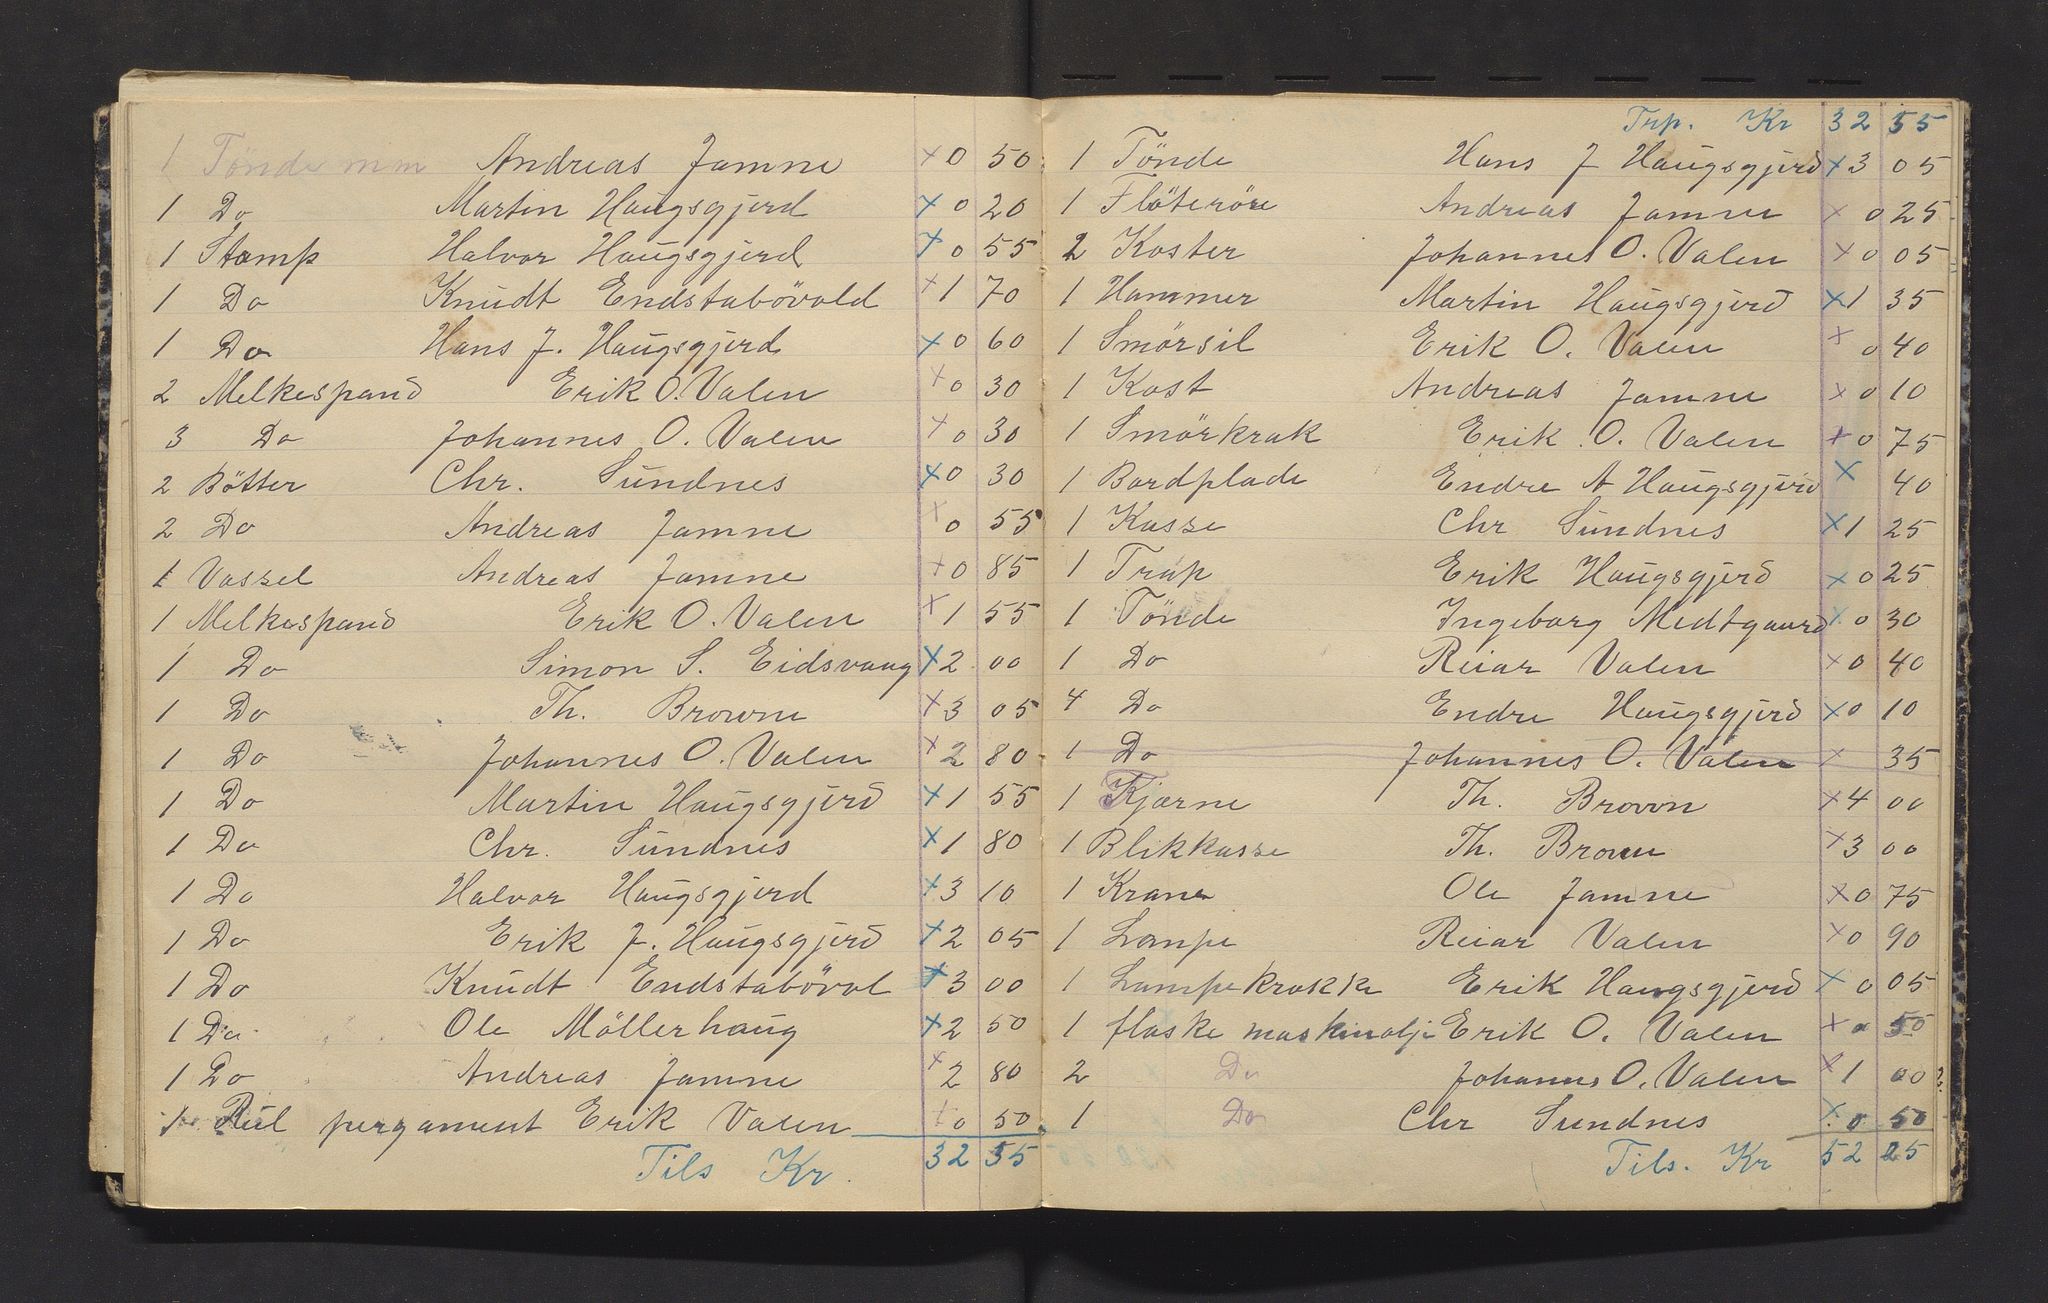 1 Tönde m m Andreas Jamne x 0 50
1 Do Martin Haugsgjerd x 0 20
1 Stamp Halvor Haugsgjerd x 0 55
1 Do Knudt Endstabövold x 1 70
1 Do Hans J. Haugsgjerd x 0 60
2 Melkespand Erik O. Valen x 0 30
3 Do Johannes O. Valen x 0 30
2 Bötter Chr. Sundnes x 0 30
2 Do Andreas Jamne x 0 55
1 Vassel Andreas Jamne x 0 85
1 Melkespand Erik O. Valen x 1 55
1 Do Simon S. Eidsvaag x 2 00
1 Do Th. Browne x 3 05
1 Do Johannes O. Valen x 2 80
1 Do Martin Haugsgjerd x 1 55
1 Do Chr. Sundnes x 1 80
1 Do Halvor Haugsgjerd x 3 10
1 Do Erik J. Haugsgjerd x 2 05
1 Do Knudt Endstabövol x 3 00
1 Do Ole Möllerhaug x 2 50
1 Do Andreas Jamne x 2 80
1 Rul pergament Erik Valen x 0 50
Tils Kr. 32 55
Trp. Kr 32 55
1 Tönde Hans J Haugsgjerd x 3 05
1 Flöteröre Andreas Jamne x 0 25
2 Koster Johannes O. Valen x 0 05
1 Hammer Martin Haugsgjerd x 1 35
1 Smörsil Erik O. Valen x 0 40
1 Kost Andreas Jamne x 0 10
1 Smörkrak Erik O. Valen x 0 75
1 Bordplade Endre A Haugsgjerd x 40
1 Kasse Chr Sundnes x 1 25
1 Trap Erik Haugsgjerd x 0 25
1 Tönde Ingeborg Medtgaard x 0 30
1 Do Reiar Valen x 0 40
4 Do Endre Haugsgjerd x 0 10
1 Do Johannes O. Valen x 35
1 Kjærne Th. Brown x 4 00
1 Blikkasse Th. Brown x 3 00
1 Krane Ole Jamne x 0 75
1 Lampe Reiar Valen x 0 90
1 Lampekrokke Erik Haugsgjerd x 0 05
1 flaske maskinolje Erik O. Valen x 0 50
2 Do Johannes O. Valen x 1 00
1 Do Chr Sundnes x 0 50
Tils. Kr 52 25